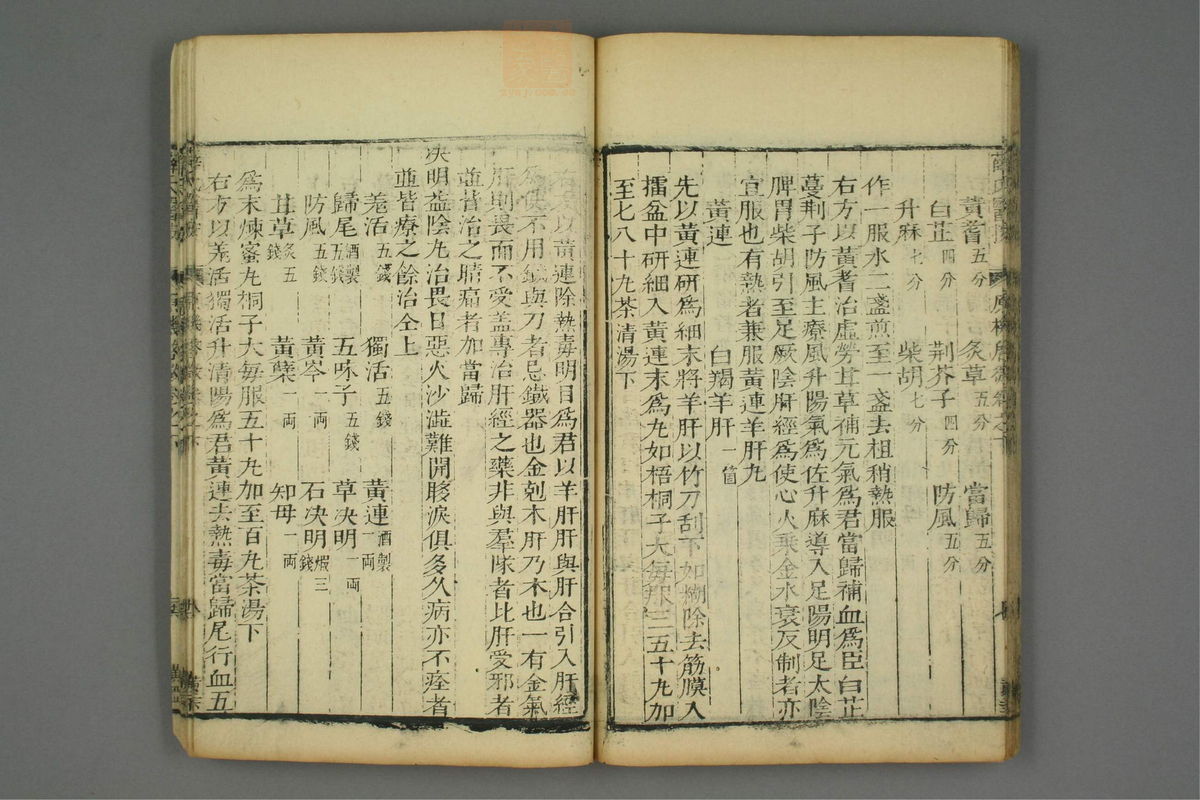 黃耆五分 炙草五分 當歸五分
白芷四分 荆芥子四分 防風五分
升麻七分 柴胡七分
作一服水二盞煎至一盞去柤稍熱服
右方以黃耆治虛勞甘草補元氣爲君當歸補血爲臣白芷
蔓荆子防風主療風升陽氣爲佐升麻導入足陽明足太陰
脾胃柴胡引至足厥陰肝經爲使心火乘金水衰反制者亦
宜服也有熱者兼服黃連羊肝丸
黃連一 白羯羊肝一箇
先以黃連研爲細末將羊肝以竹刀刮下如糊除去筋膜入
擂盆中研細入黃連末爲丸如梧桐子大每服三五十丸加
至七八十丸茶清湯下
右方以黃連除熱毒明目爲君以羊肝肝與肝合引入肝經
爲使不用鐵與刀者忌鐵器也金剋木肝乃木也一有金氣
肝則畏而不受蓋專治肝經之藥非與羣隊者比肝受邪者
並皆治之睛痛者加當歸
决明益陰丸治畏日惡火沙澁難開眵淚俱多久病亦不痊者
並皆療之餘治仝上
羗活五錢 獨活五錢 黃連酒製一兩
歸尾酒製五錢 五味子五錢 草决明一兩
防風五錢 黃芩一兩 石决明煆三錢
甘草炙五錢 黃蘗一兩 知母一兩
爲末煉蜜丸桐子大每服五十丸加至百丸茶湯下
右方以羗活獨活升清陽爲君黃連去熱毒當歸尾行血五